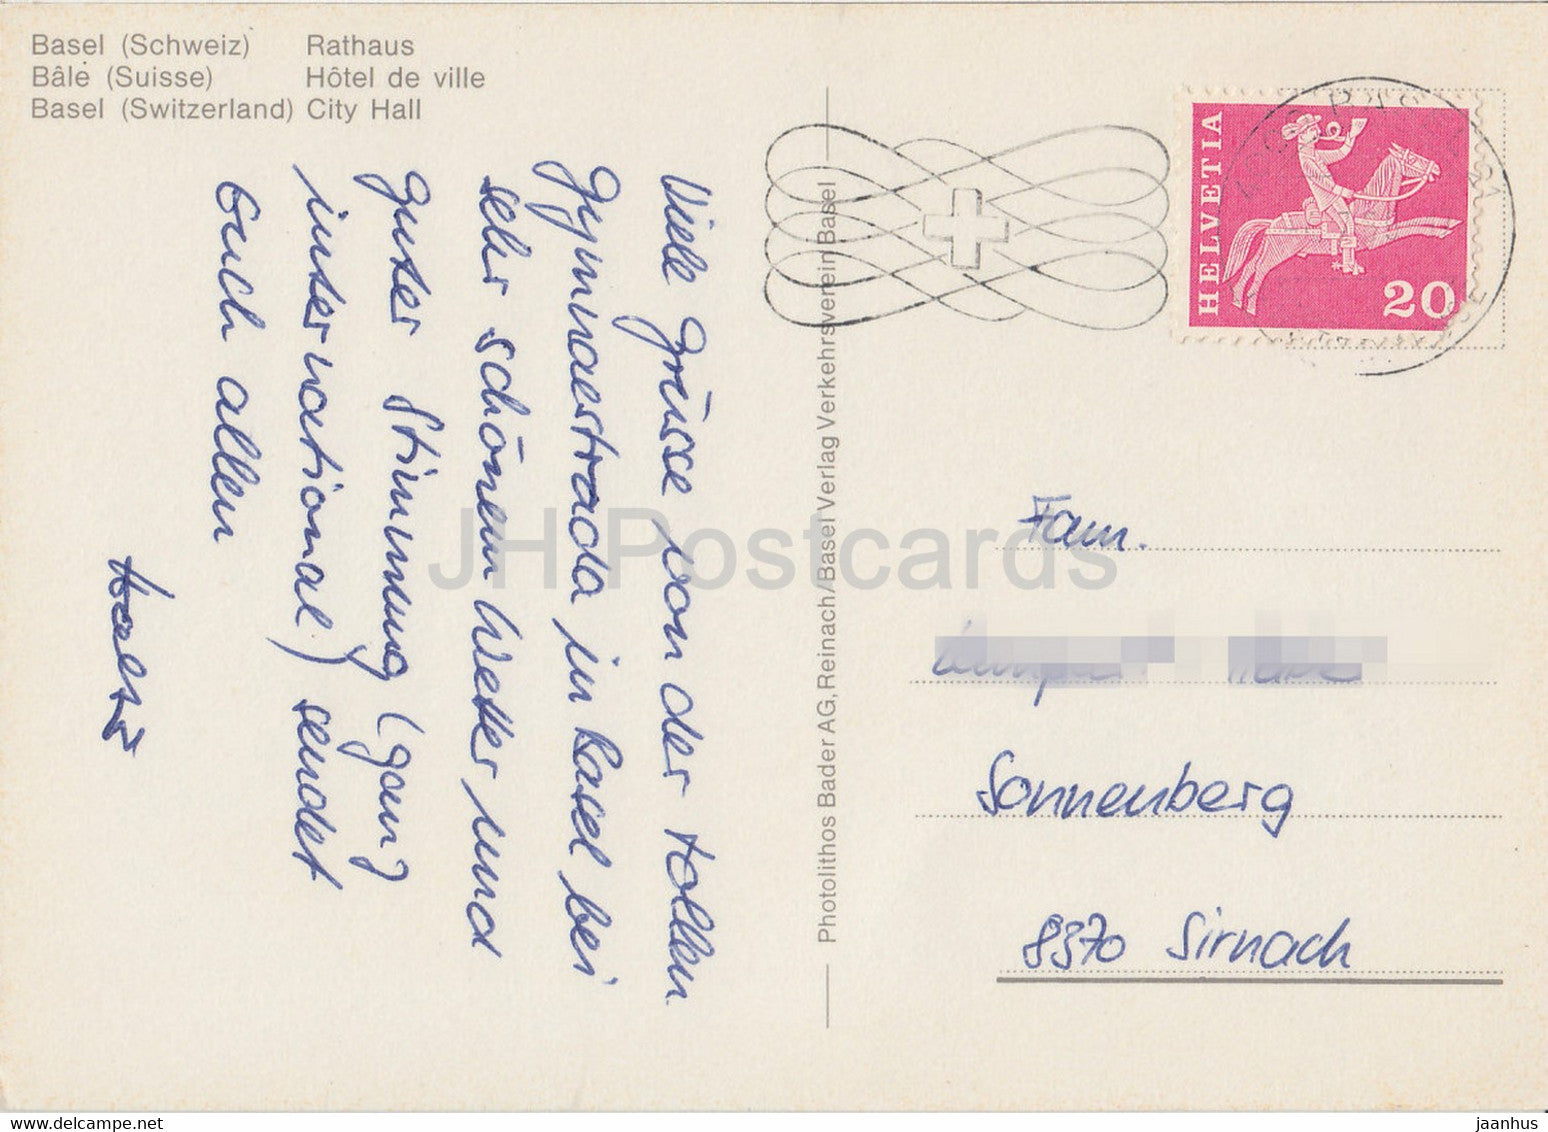 Basel (Schweiz) Rathaus
Bâle (Suisse) Hôtel de ville
Basel (Switzerland) City Hall
Viele Grüsse von der tollen
Gymnaestrada in Basel bei
sehr schönem Wetter und
guter Stimmung (ganz
international) sendet
Euch allen
Photolithos Bader AG, Reinach/Basel Verlag Verkehrsverein Basel
HELVETIA
20
Fam.
Sonnenberg
8370 Sirnach
JH Postcards
delcampe.net
jaanhus